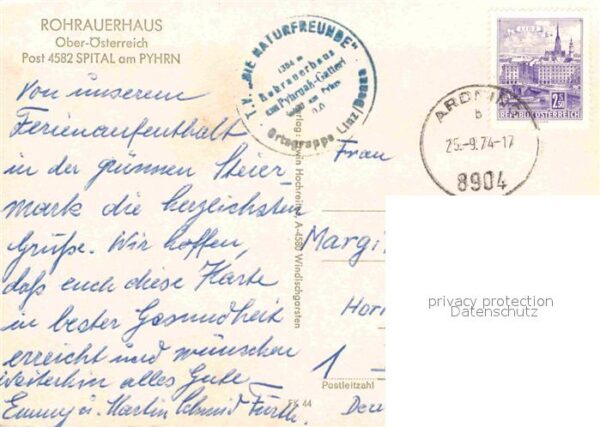 ROHRAUERHAUS
Ober-Österreich
Post 4582 SPITAL am PYHRN
Von unserem
Ferienaufenthalt
in der grünnen Steier-
mark die herzlichsten
Grüße. Wir hoffen,
daß euch diese Karte
in bester Gesundheit
erreicht und wünschen
weiterhin alles Gute
Emmy u. Martin Schmid Fürth.
T.V. "DIE NATURFREUNDE"
Rohrauerhaus
am Pyhrn
Ortsgruppe Linz/Donau
Verlag: Erwin Hochreiter, A-4580 Windischgarsten
FK 44
LINZ
2.50
REPUBLIK ÖSTERREICH
b
25.-9.74-17
8904
Frau
Margi
Hori
1-
Postleitzahl
privacy protection
Datenschutz